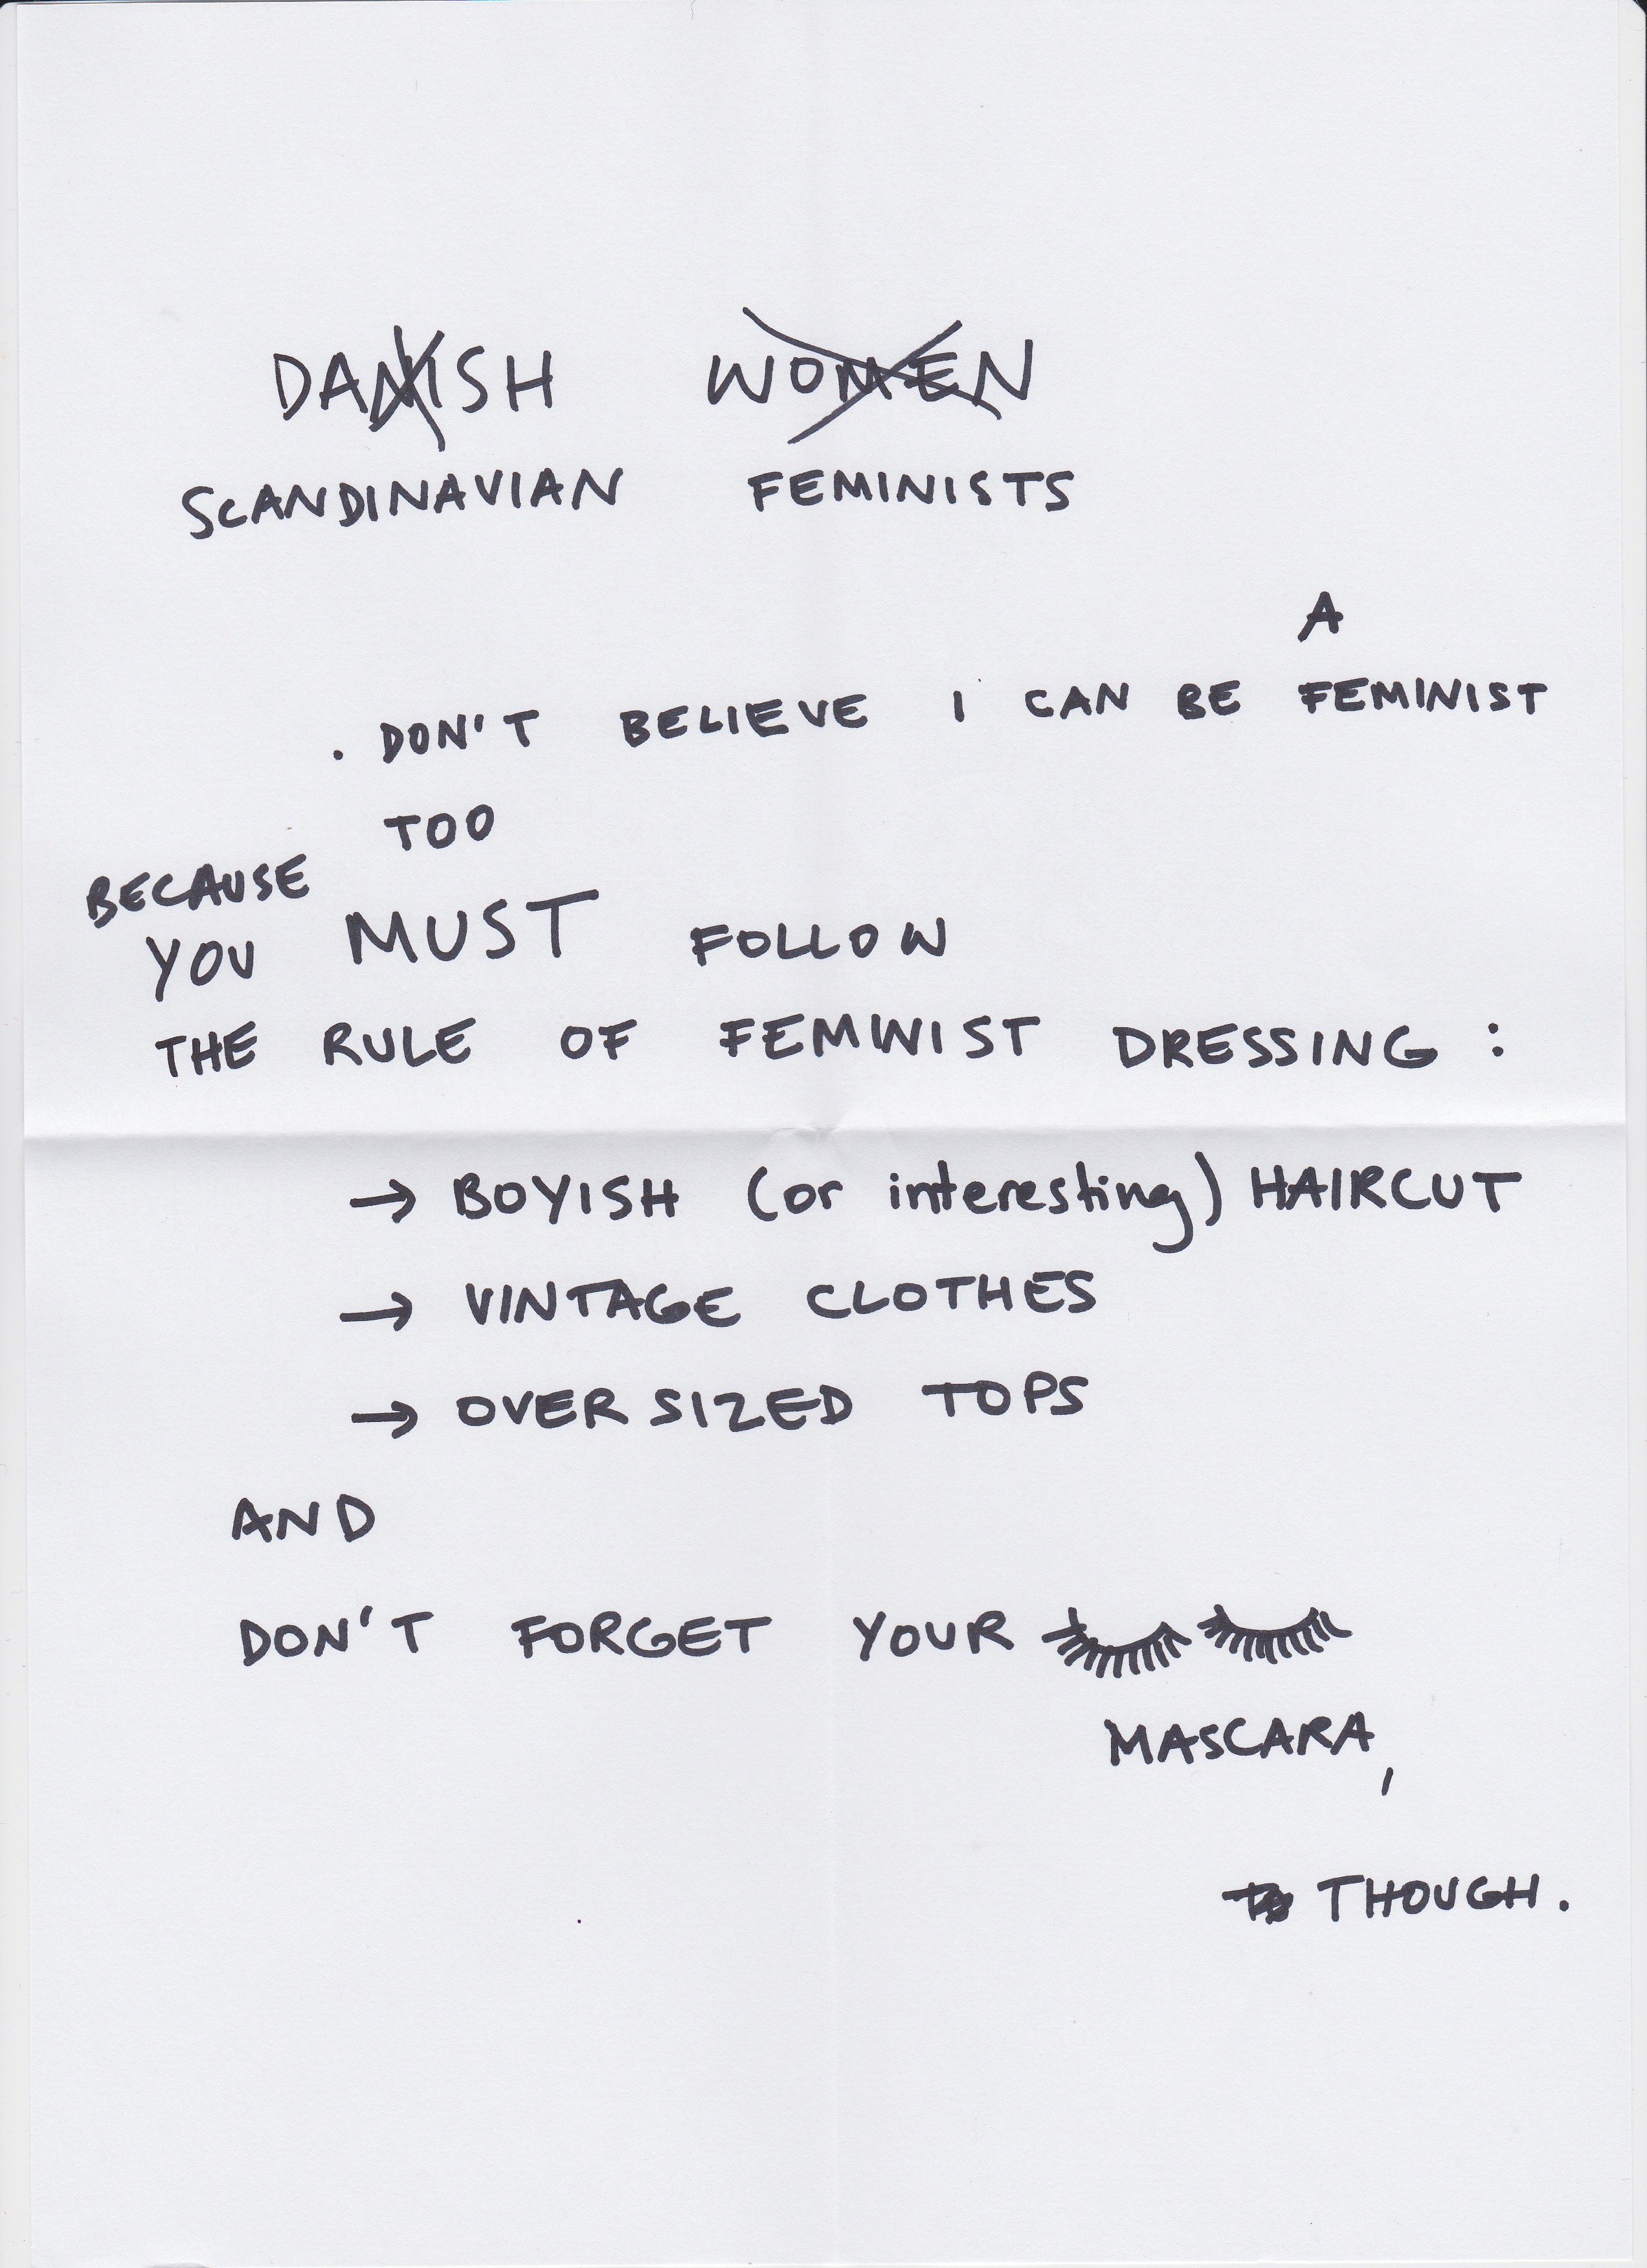 DANISH WOMEN
SCANDINAVIAN FEMINISTS
A
. DON'T BELIEVE I CAN BE FEMINIST
TOO
BECAUSE
YOU MUST FOLLOW
THE RULE OF FEMINIST DRESSING :
→ BOYISH (or interesting) HAIRCUT
→ VINTAGE CLOTHES
→ OVERSIZED TOPS
AND
DON'T FORGET YOUR
MASCARA,
THOUGH.